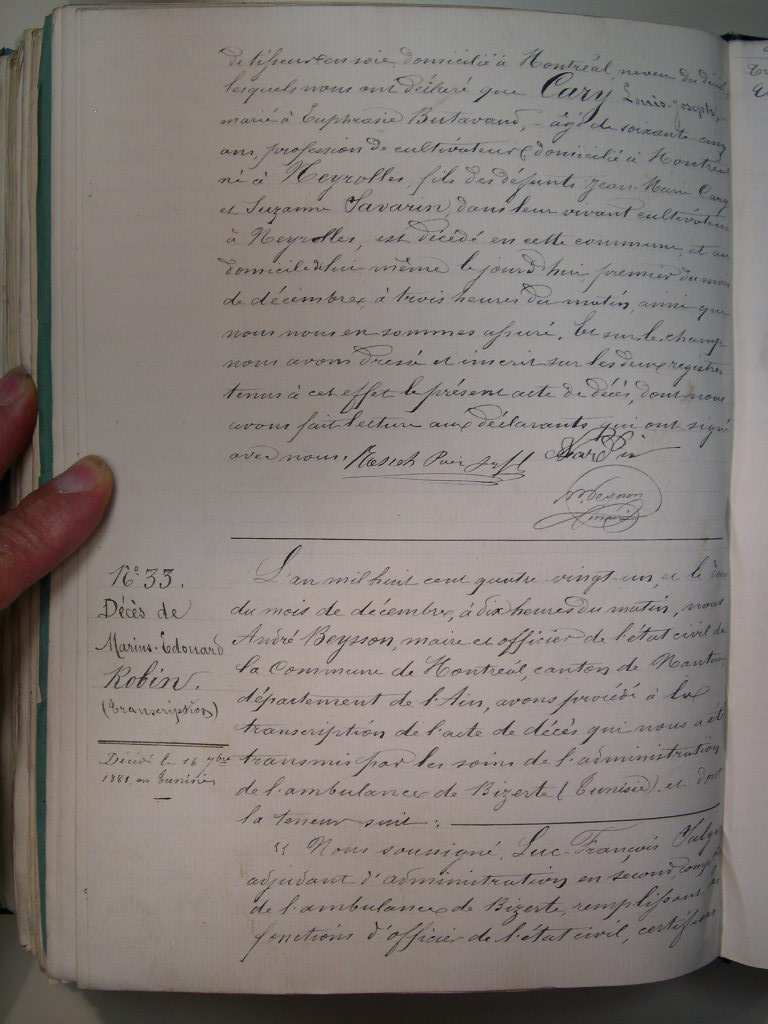 de tisseur en soie domicilié à Montréal, neveu du
lesquels nous ont déclaré que Cary Louis-Joseph,
marié à Euphrasie Butavand, âgé de soixante cinq
ans, profession de cultivateur, domicilié à Montréal
né à Neyrolles, fils des défunts Jean-Marie Cary
et Suzanne Savarin, dans leur vivant cultivateurs
à Neyrolles, est décédé en cette commune, et au
domicile de lui même le jourd'hui, premier du mois
de décembre, à trois heures du matin, ainsi que
nous nous en sommes assuré. Et sur le champ
nous avons dressé et inscrit sur les deux registres
tenus à cet effet le présent acte de décès, dont nous
avons fait lecture aux déclarants qui ont signé
avec nous.
N° 33.
Décès de
Marius-Edouard
Robin.
(Transcription)
Décédé le 16 9bre
1881, en Tunisie
L'an mil huit cent quatre vingt-un, et le
du mois de décembre, à dix heures du matin, nous
André Beysson, maire et officier de l'état civil de
la Commune de Montréal, canton de Nantua
département de l'Ain, avons procédé à la
transcription de l'acte de décès qui nous a été
transmis par les soins de l'administration
de l'ambulance de Bizerte (Tunisie) et dont
la teneur suit :
" Nous soussigné, Luc-François
adjudant d'administration en second,
de l'ambulance de Bizerte, remplissant les
fonctions d'officier de l'état civil, certifions